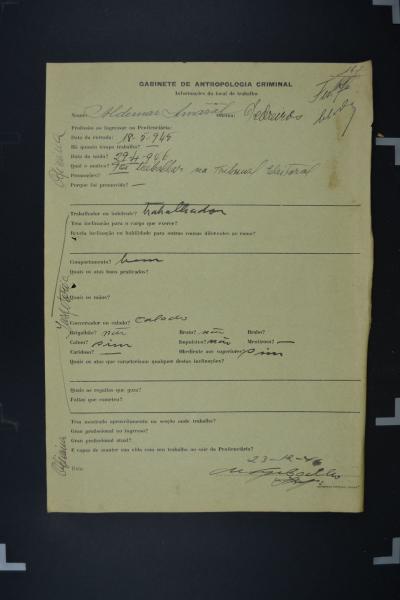 GABINETE DE ANTROPOLOGIA CRIMINAL
Informações do local de trabalho
Nome: Aldemar Amaral Pedreiros
Profissão ao ingressar na Penitenciária:
Data da entrada: 18-5-945
Há quanto tempo trabalha? —
Data da saída? 29-4-946
Qual o motivo? trabalhar no Tribunal Eleitoral
Promoções? —
Porque foi promovido? —
Trabalhador ou indolente? trabalhador
Tem inclinação para o cargo que exerce?
Revela inclinação ou habilidade para outras coisas diferentes ao cargo?
Comportamento? bom
Quais os atos bons praticados?
Quais os máus?
Conversador ou calado? Calado
Brigalhão? não Bruto? não Brabo?
Calmo? sim Impulsivo? não Mentiroso? —
Caridoso? — Obediente aos superiores? sim
Quais os atos que caracterizam qualquer destas inclinações?
Quais as regalias que goza?
Faltas que cometeu?
Tem mostrado aproveitamento na secção onde trabalha?
Grau profissional no ingresso?
Grau profissional atual?
É capaz de manter sua vida com seu trabalho ao sair da Penitenciária?
Data 23-12-46